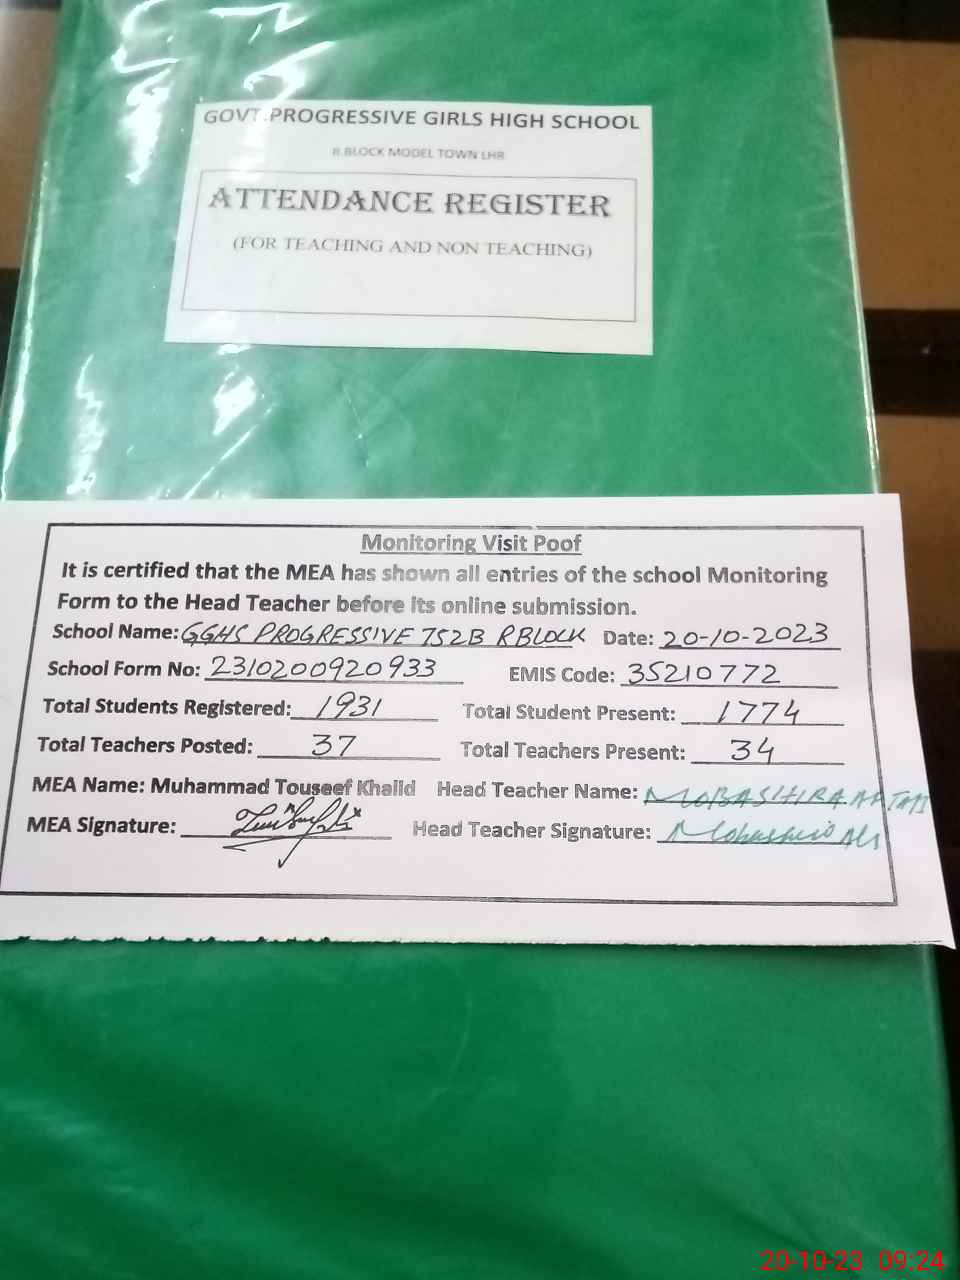 GOVT.PROGRESSIVE GIRLS HIGH SCHOOL
R.BLOCK MODEL TOWN LHR
ATTENDANCE REGISTER
(FOR TEACHING AND NON TEACHING)
Monitoring Visit Poof
It is certified that the MEA has shown all entries of the school Monitoring
Form to the Head Teacher before its online submission.
School Name: GGHS PROGRESSIVE 752B RBLOCK Date: 20-10-2023
School Form No: 2310200920933 EMIS Code: 35210772
Total Students Registered: 1931 Total Student Present: 1774
Total Teachers Posted: 37 Total Teachers Present: 34
MEA Name: Muhammad Touseef Khalid Head Teacher Name: MOBASHIRA
MEA Signature: Head Teacher Signature:
20-10-23 09:24